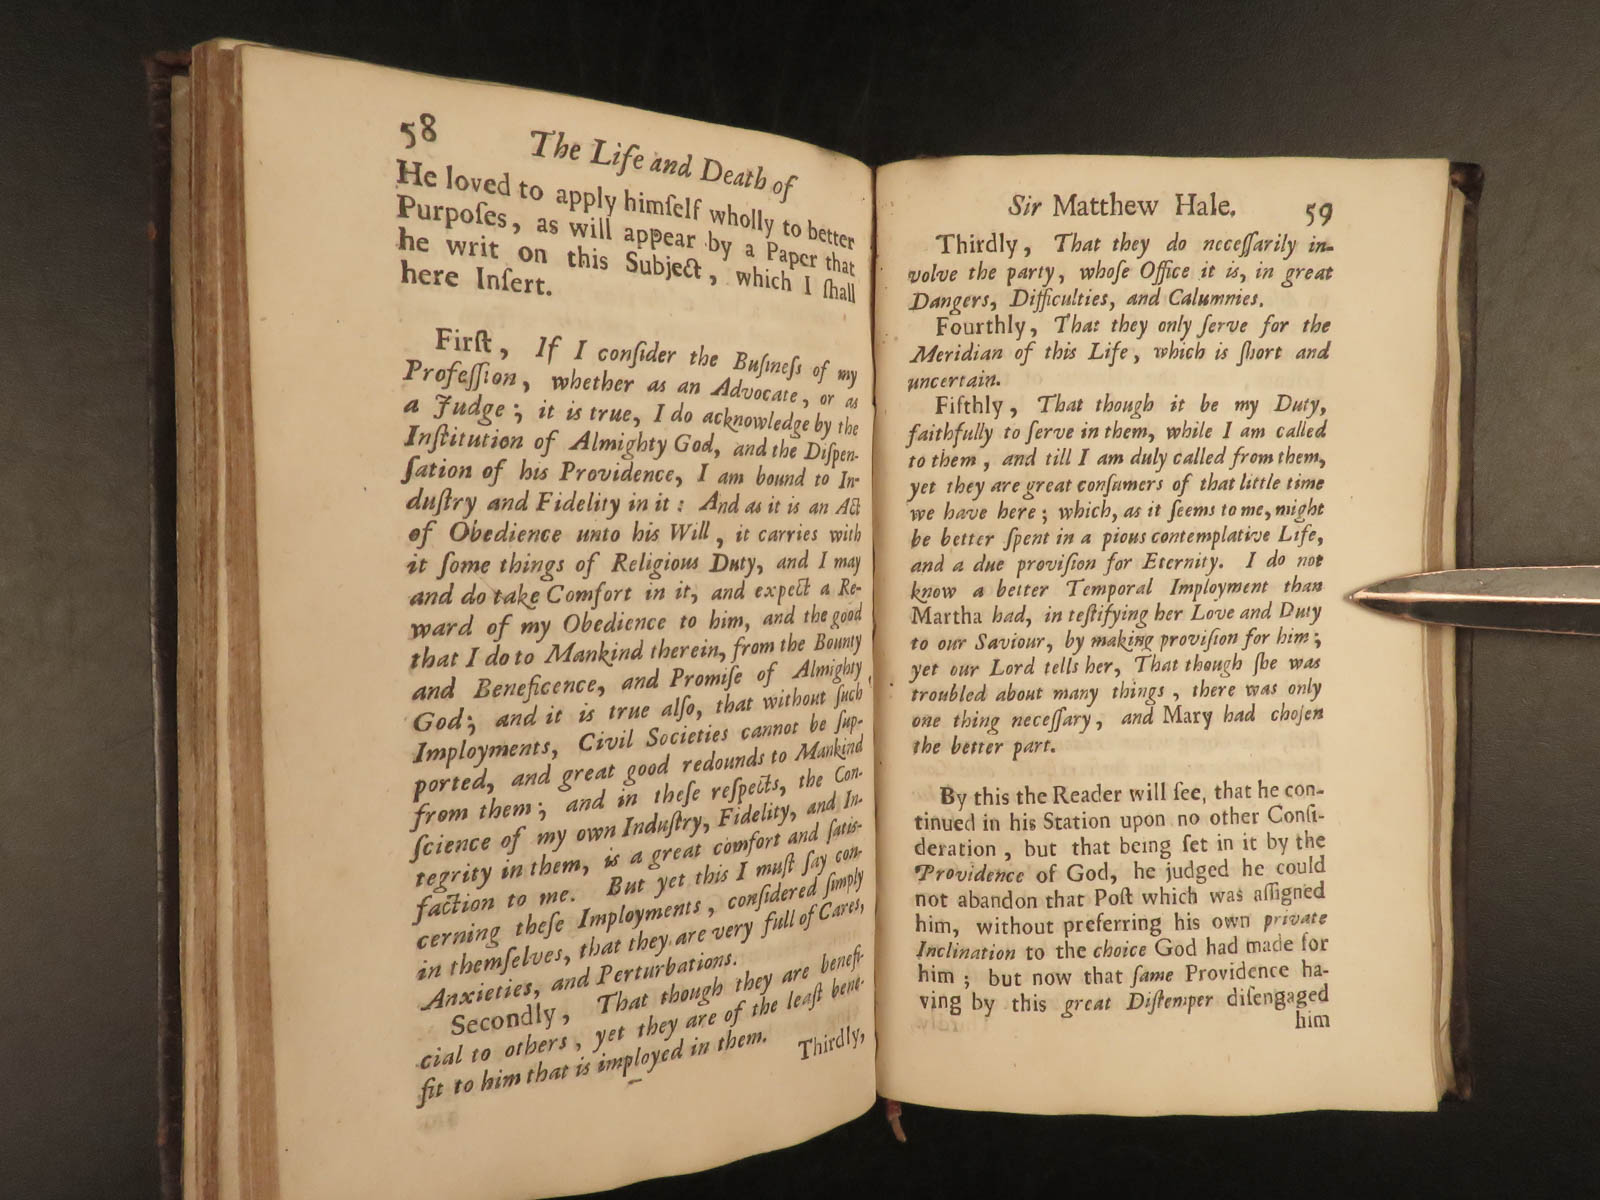 58
The Life and Death of
He loved to apply himſelf wholly to better
Purpoſes, as will appear by a Paper that
he writ on this Subject, which I ſhall
here Inſert.
Firſt, If I conſider the Buſineſs of my
Profeſſion, whether as an Advocate, or as
a Judge; it is true, I do acknowledge by the
Inſtitution of Almighty God, and the Diſpen-
ſation of his Providence, I am bound to In-
duſtry and Fidelity in it: And as it is an Act
of Obedience unto his Will, it carries with
it ſome things of Religious Duty, and I may
and do take Comfort in it, and expect a Re-
ward of my Obedience to him, and the good
that I do to Mankind therein, from the Bounty
and Beneficence, and Promiſe of Almighty
God; and it is true alſo, that without ſuch
Imployments, Civil Societies cannot be ſup-
ported, and great good redounds to Mankind
from them; and in theſe reſpects, the Con-
ſcience of my own Induſtry, Fidelity, and In-
tegrity in them, is a great comfort and ſatis-
faction to me. But yet this I muſt ſay con-
cerning theſe Imployments, conſidered ſimply
in themſelves, that they are very full of Cares,
Anxieties, and Perturbations.
Secondly, That though they are benefi-
cial to others, yet they are of the leaſt bene-
fit to him that is imployed in them.
Thirdly,
Sir Matthew Hale. 59
Thirdly, That they do neceſſarily in-
volve the party, whoſe Office it is, in great
Dangers, Difficulties, and Calumnies.
Fourthly, That they only ſerve for the
Meridian of this Life, which is ſhort and
uncertain.
Fifthly, That though it be my Duty,
faithfully to ſerve in them, while I am called
to them, and till I am duly called from them,
yet they are great conſumers of that little time
we have here; which, as it ſeems to me, might
be better ſpent in a pious contemplative Life,
and a due proviſion for Eternity. I do not
know a better Temporal Imployment than
Martha had, in teſtifying her Love and Duty
to our Saviour, by making proviſion for him;
yet our Lord tells her, That though ſhe was
troubled about many things, there was only
one thing neceſſary, and Mary had choſen
the better part.
By this the Reader will ſee, that he con-
tinued in his Station upon no other Conſi-
deration, but that being ſet in it by the
Providence of God, he judged he could
not abandon that Poſt which was aſſigned
him, without preferring his own private
Inclination to the choice God had made for
him; but now that ſame Providence ha-
ving by this great Diſtemper diſengaged
him